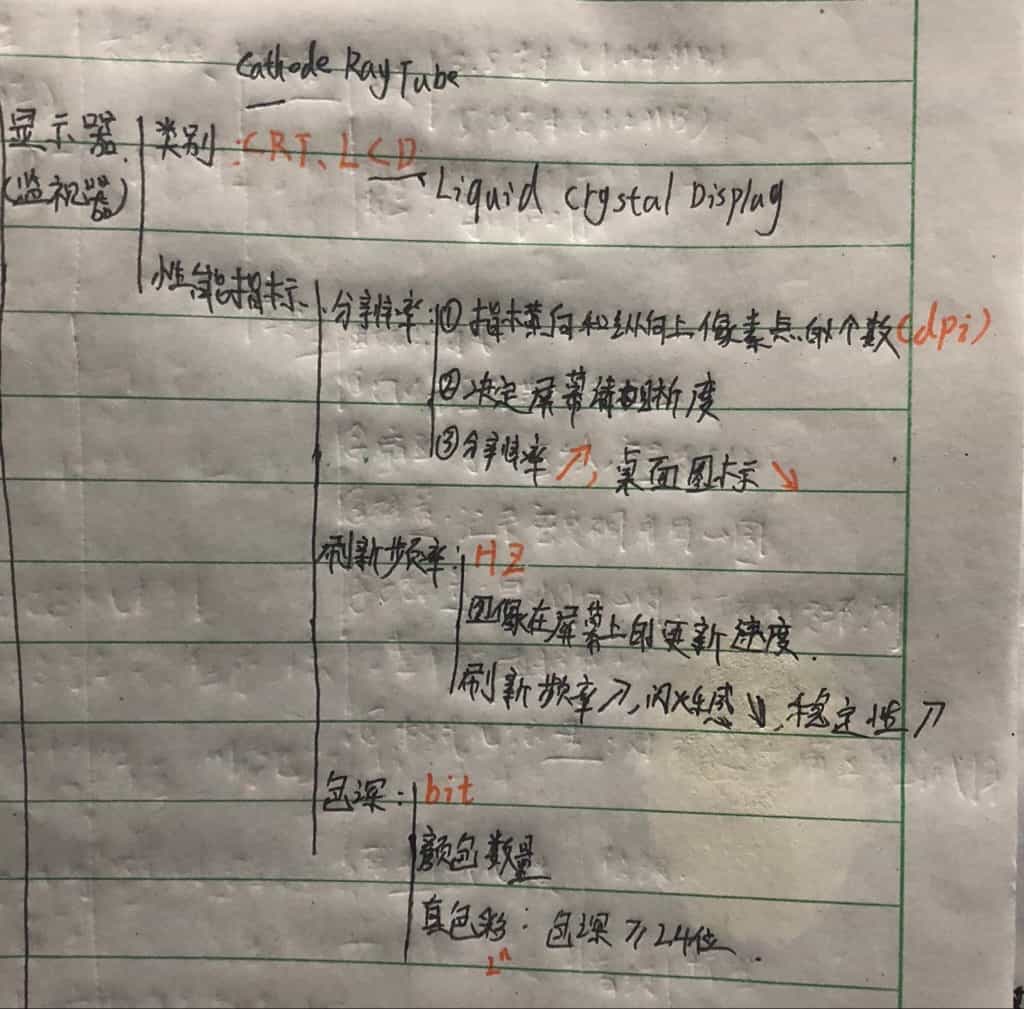 Cathode Ray Tube
显示器 类别:CRT、LCD
(监视器) Liquid Crystal Display
性能指标 分辨率:①指横向和纵向上像素点的个数(dpi)
②决定屏幕清晰度
③分辨率↗,桌面图标↘
刷新频率:HZ
图像在屏幕上的更新速度.
刷新频率↗,闪烁感↘,稳定性↗
色深:bit
颜色数量
真色彩:色深≥24位.
2ⁿ